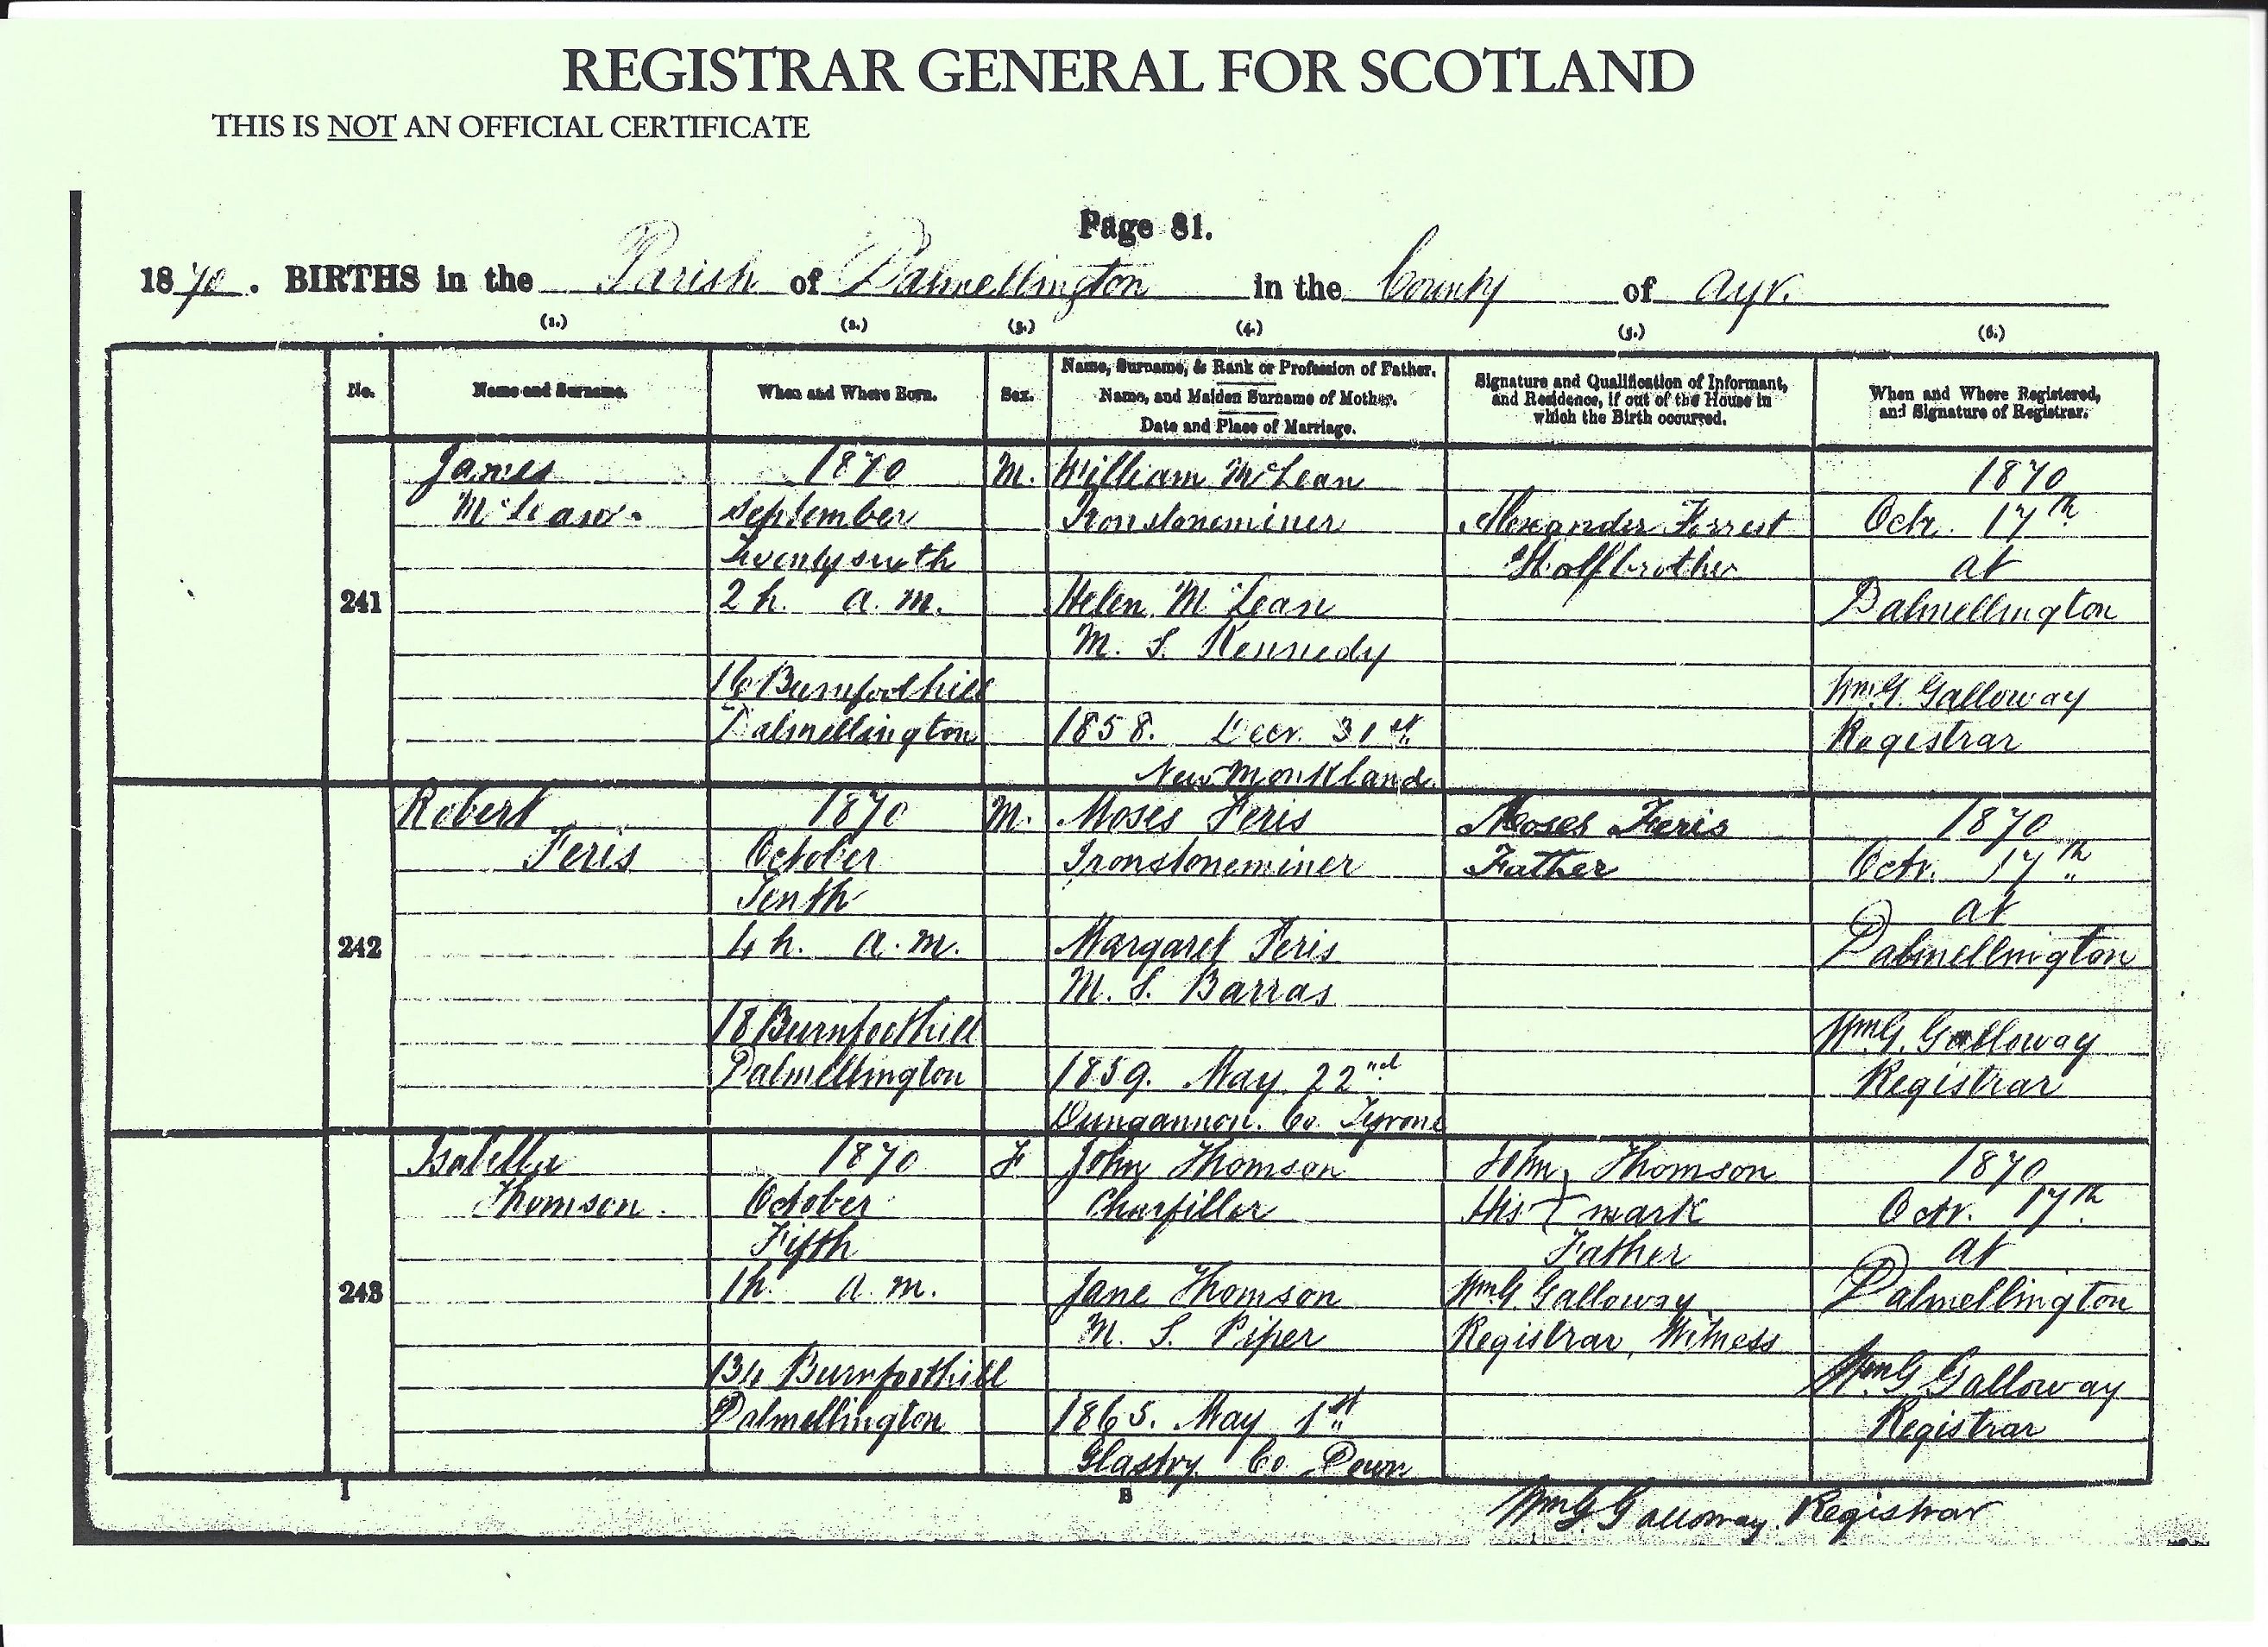 REGISTRAR GENERAL FOR SCOTLAND
THIS IS NOT AN OFFICIAL CERTIFICATE
Page 81.
1870. BIRTHS in the Parish of Dalmellington in the County of Ayr.
(1.) (2.) (3.) (4.) (5.) (6.)
No.
Name and Surname.
When and Where Born.
Sex.
Name, Surname, & Rank or Profession of Father.
Name, and Maiden Surname of Mother.
Date and Place of Marriage.
Signature and Qualification of Informant,
and Residence, if out of the House in
which the Birth occurred.
When and Where Registered,
and Signature of Registrar.
241
James
McLean
1870
September
Twentysixth
2 h. a. m.
16 Burnfoothill
Dalmellington
M.
William McLean
Ironstoneminer
Helen McLean
M. S. Kennedy
1858. Decr. 31st
New Monkland
Alexander Forrest
Halfbrother
1870
Octr. 17th
at
Dalmellington
Wm G. Galloway
Registrar
242
Robert
Feris
1870
October
Tenth
4 h. a. m.
18 Burnfoothill
Dalmellington
M.
Moses Feris
Ironstoneminer
Margaret Feris
M. S. Barras
1859. May 22nd
Dungannon. Co Tyrone
Moses Feris
Father
1870
Octr. 17th
at
Dalmellington
Wm G. Galloway
Registrar
243
Isabella
Thomson.
1870
October
Fifth
1 h. a. m.
134 Burnfoothill
Dalmellington
F
John Thomson
Charfiller
Jane Thomson
M. S. Piper
1865. May 1st
Glastry Co Down
John Thomson
His mark
Father
Wm G. Galloway
Registrar, Witness
1870
Octr. 17th
at
Dalmellington
Wm G Galloway
Registrar
I
B
Wm G. Galloway. Registrar